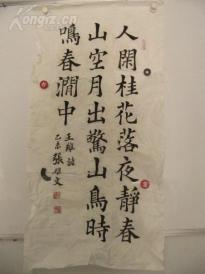 人閑桂花落夜靜春
山空月出驚山鳥時
鳴春澗中
王維詩
乙未 張 文